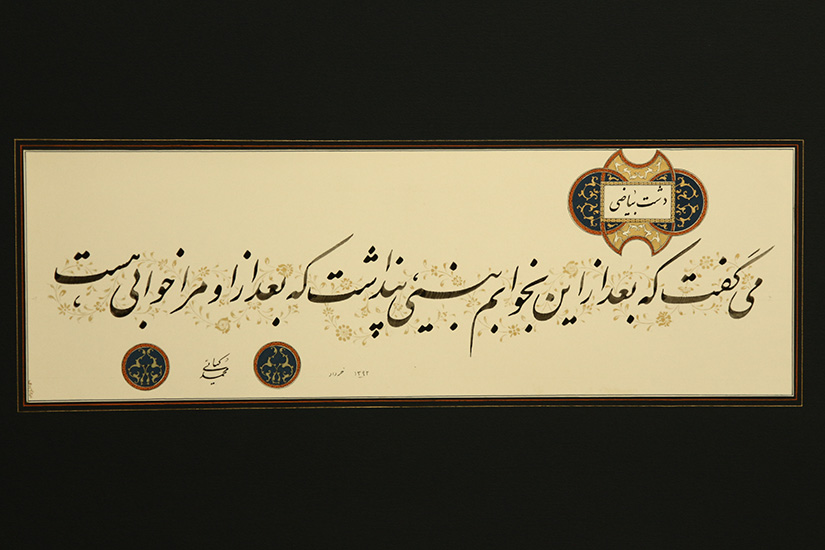 دشت بیاضی
می گفت که بعد از این بخوابم بینی، پنداشت که بعد از او مرا خوابی هست
خرداد ۱۳۹۲